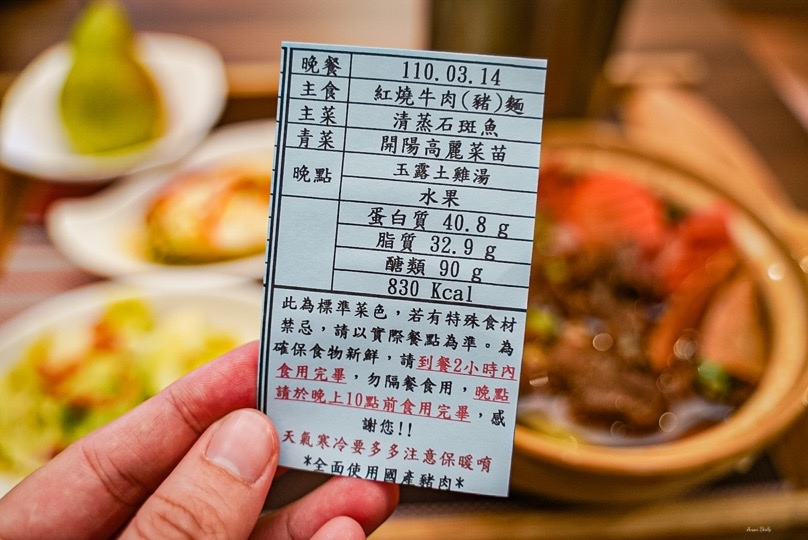 晚餐 110.03.14
主食 紅燒牛肉(豬)麵
主菜 清蒸石斑魚
青菜 開陽高麗菜苗
晚點 玉露土雞湯
水果
蛋白質 40.8 g
脂質 32.9 g
醣類 90 g
830 Kcal
此為標準菜色，若有特殊食材
禁忌，請以實際餐點為準。為
確保食物新鮮，請到餐2小時內
食用完畢，勿隔餐食用，晚點
請於晚上10點前食用完畢，感
謝您!!
天氣寒冷要多多注意保暖唷
*全面使用國產豬肉*